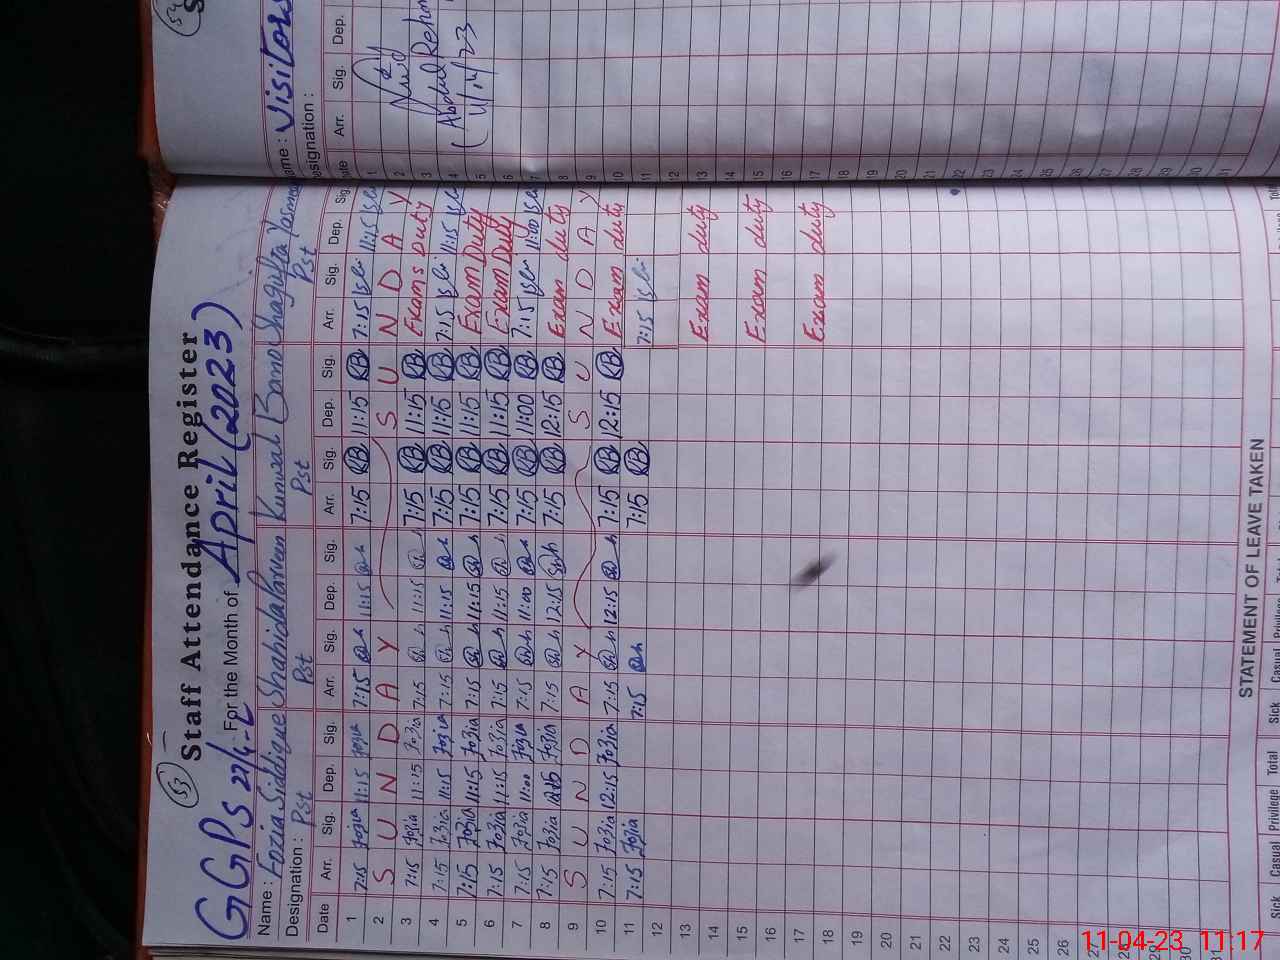 53
Staff Attendance Register
GGPS 22/4-L For the Month of April (2023)
Name : Fozia Siddique Shahida Parveen Kunwal Bano Shagufta Yasmeen
Designation : Pst Pst Pst Pst
Date Arr. Sig. Dep. Sig. Arr. Sig. Dep. Sig. Arr. Sig. Dep. Sig. Arr. Sig. Dep. Sig.
1 7:15 Fozia 11:15 Fozia 7:15 11:15 7:15 KB 11:15 KB 7:15 11:15
2 S U N D A Y S U N D A Y
3 7:15 Fozia 11:15 Fozia 7:15 11:15 7:15 KB 11:15 KB Exams Duty
4 7:15 Fozia 11:15 Fozia 7:15 11:15 7:15 KB 11:15 KB 7:15 11:15
5 7:15 Fozia 11:15 Fozia 7:15 11:15 7:15 KB 11:15 KB Exam Duty
6 7:15 Fozia 11:15 Fozia 7:15 11:15 7:15 KB 11:15 KB Exam Duty
7 7:15 Fozia 11:00 Fozia 7:15 11:00 7:15 KB 11:00 KB 7:15 11:00
8 7:15 Fozia 12:15 Fozia 7:15 12:15 7:15 KB 12:15 KB Exam duty
9 S U N D A Y S U N D A Y
10 7:15 Fozia 12:15 Fozia 7:15 12:15 7:15 KB 12:15 KB Exam duty
11 7:15 Fozia 7:15 7:15 KB 7:15
12
13 Exam duty
14
15 Exam duty
16
17 Exam duty
18
19
20
21
22
23
24
25
26
27
28
29
30
31
STATEMENT OF LEAVE TAKEN
Sick Casual Privilege Total Sick Casual Privilege Total
Name : Visitors
Designation :
Date Arr. Sig. Dep.
1
2
3
4 Abdul Rehman
5 11/4/23
6
7
8
9
10
11
12
13
14
15
16
17
18
19
20
21
22
23
24
25
26
27
28
29
30
31
11-04-23 11:17